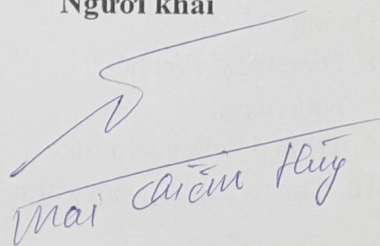 Người khai
Mai Chiêm Hùng